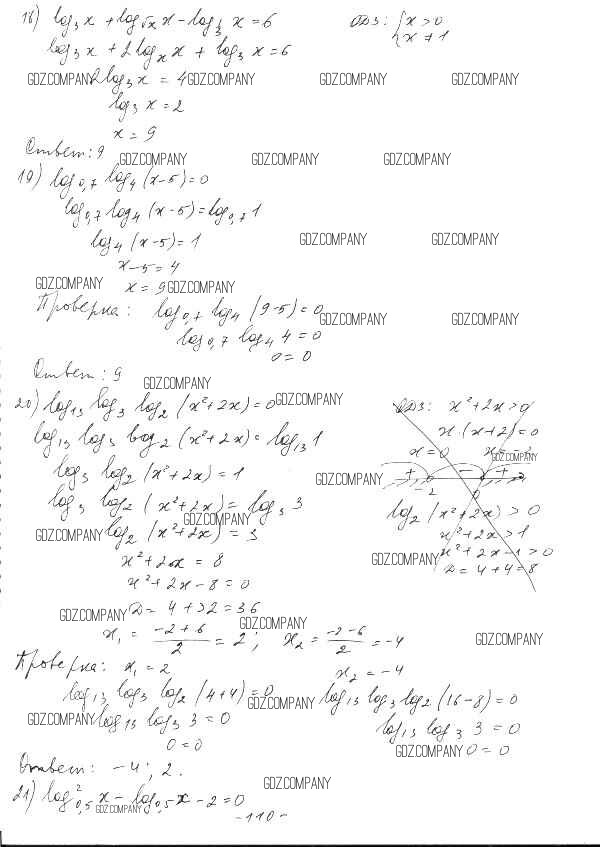 18) log₃ x + log_√x x − log_⅓ x = 6 ОДЗ: { x > 0
log₃ x + 2 log_x x + log₃ x = 6 x ≠ 1
GDZ.COMPANY 2 log₃ x = 4 GDZ.COMPANY GDZ.COMPANY GDZ.COMPANY
log₃ x = 2
x = 9
Ответ: 9 GDZ.COMPANY GDZ.COMPANY GDZ.COMPANY
19) log₀,₇ log₄ (x−5) = 0
log₀,₇ log₄ (x−5) = log₀,₇ 1
log₄ (x−5) = 1 GDZ.COMPANY GDZ.COMPANY
x−5 = 4
GDZ.COMPANY x = 9 GDZ.COMPANY
Проверка: log₀,₇ log₄ (9−5) = 0 GDZ.COMPANY GDZ.COMPANY
log₀,₇ log₄ 4 = 0
0 = 0
Ответ: 9 GDZ.COMPANY
20) log₁₃ log₃ log₂ (x²+2x) = 0 GDZ.COMPANY ОДЗ: x²+2x > 0
log₁₃ log₃ log₂ (x²+2x) = log₁₃ 1 x·(x+2) = 0
x = 0 GDZ.COMPANY
log₃ log₂ (x²+2x) = 1 GDZ.COMPANY + − +
−2 0
log₃ log₂ (x²+2x) = log₃ 3 log₂ (x²+2x) > 0
GDZ.COMPANY
GDZ.COMPANY log₂ (x²+2x) = 3 x²+2x > 1
x²+2x = 8 GDZ.COMPANY x²+2x−1 > 0
x²+2x−8 = 0 D = 4+4 = 8
GDZ.COMPANY D = 4+32 = 36 GDZ.COMPANY
x₁ = (−2+6)/2 = 2; x₂ = (−2−6)/2 = −4 GDZ.COMPANY
Проверка: x₁ = 2 x₂ = −4
log₁₃ log₃ log₂ (4+4) = 0 GDZ.COMPANY log₁₃ log₃ log₂ (16−8) = 0
GDZ.COMPANY log₁₃ log₃ 3 = 0 log₁₃ log₃ 3 = 0
0 = 0 GDZ.COMPANY 0 = 0
Ответ: −4; 2.
GDZ.COMPANY
21) log²₀,₅ x − log₀,₅ x − 2 = 0
GDZ.COMPANY
-110-